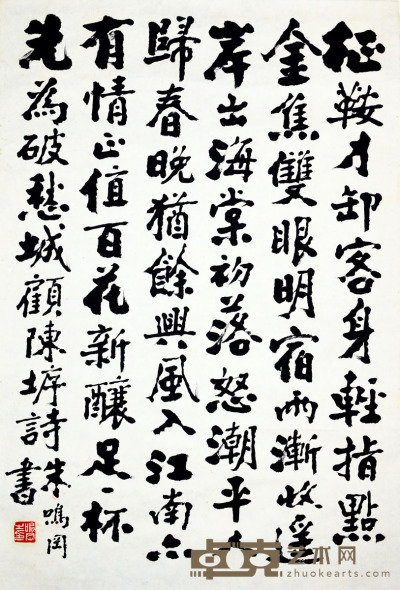 征鞍才卸客身輕指點
金焦雙眼明宿雨漸收遥
岸出海棠初落怒潮平人
歸春晚猶餘興風入江南亦
有情正值百花新釀足一杯
先為破愁城顧陳垿詩朱鳴岡
書
卓克艺术网
zhuokearts.com